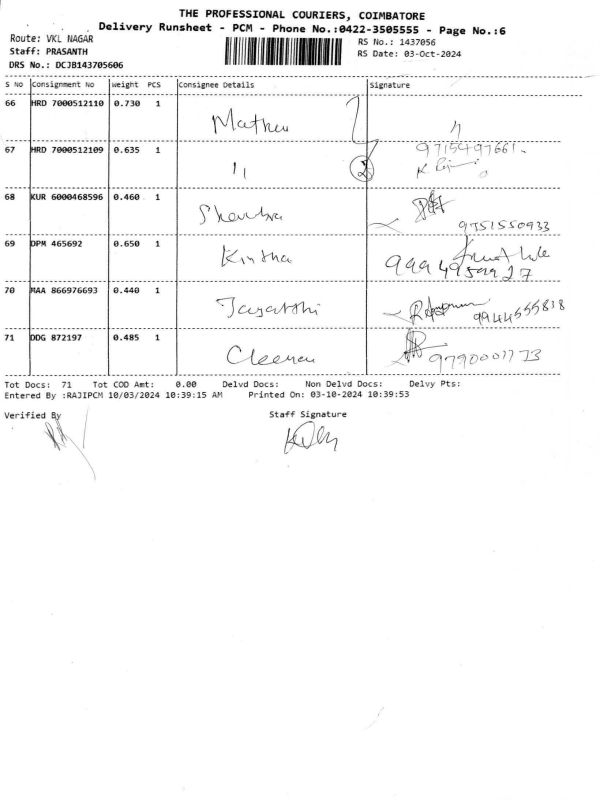 THE PROFESSIONAL COURIERS, COIMBATORE
Delivery Runsheet - PCM - Phone No.:0422-3505555 - Page No.:6
Route: VKL NAGAR
RS No.: 1437056
Staff: PRASANTH
RS Date: 03-Oct-2024
DRS No.: DCJB143705606
S No Consignment No weight PCS Consignee Details Signature
66 HRD 7000512110 0.730 1 Mathew 11
67 HRD 7000512109 0.635 1 11 2 9715497661.
68 KUR 6000468596 0.460 1 9751550933
69 DPM 465692 0.650 1 Kinsha 9994959927
70 MAA 866976693 0.440 1 9944555818
71 DDG 872197 0.485 1 9790001773
Tot Docs: 71 Tot COD Amt: 0.00 Delvd Docs: Non Delvd Docs: Delvy Pts:
Entered By :RAJIPCM 10/03/2024 10:39:15 AM Printed On: 03-10-2024 10:39:53
Verified By Staff Signature